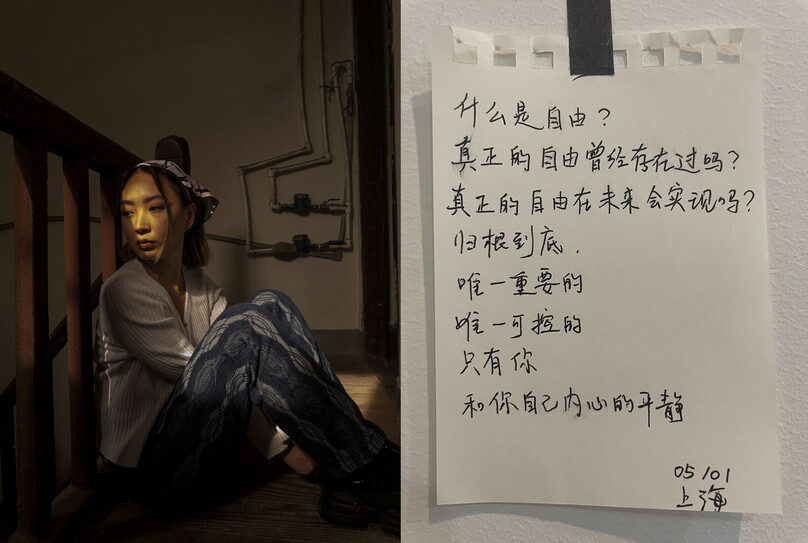 什么是自由？
真正的自由曾经存在过吗？
真正的自由在未来会实现吗？
归根到底．
唯一重要的
唯一可控的
只有你
和你自己内心的平静
05/01
上海